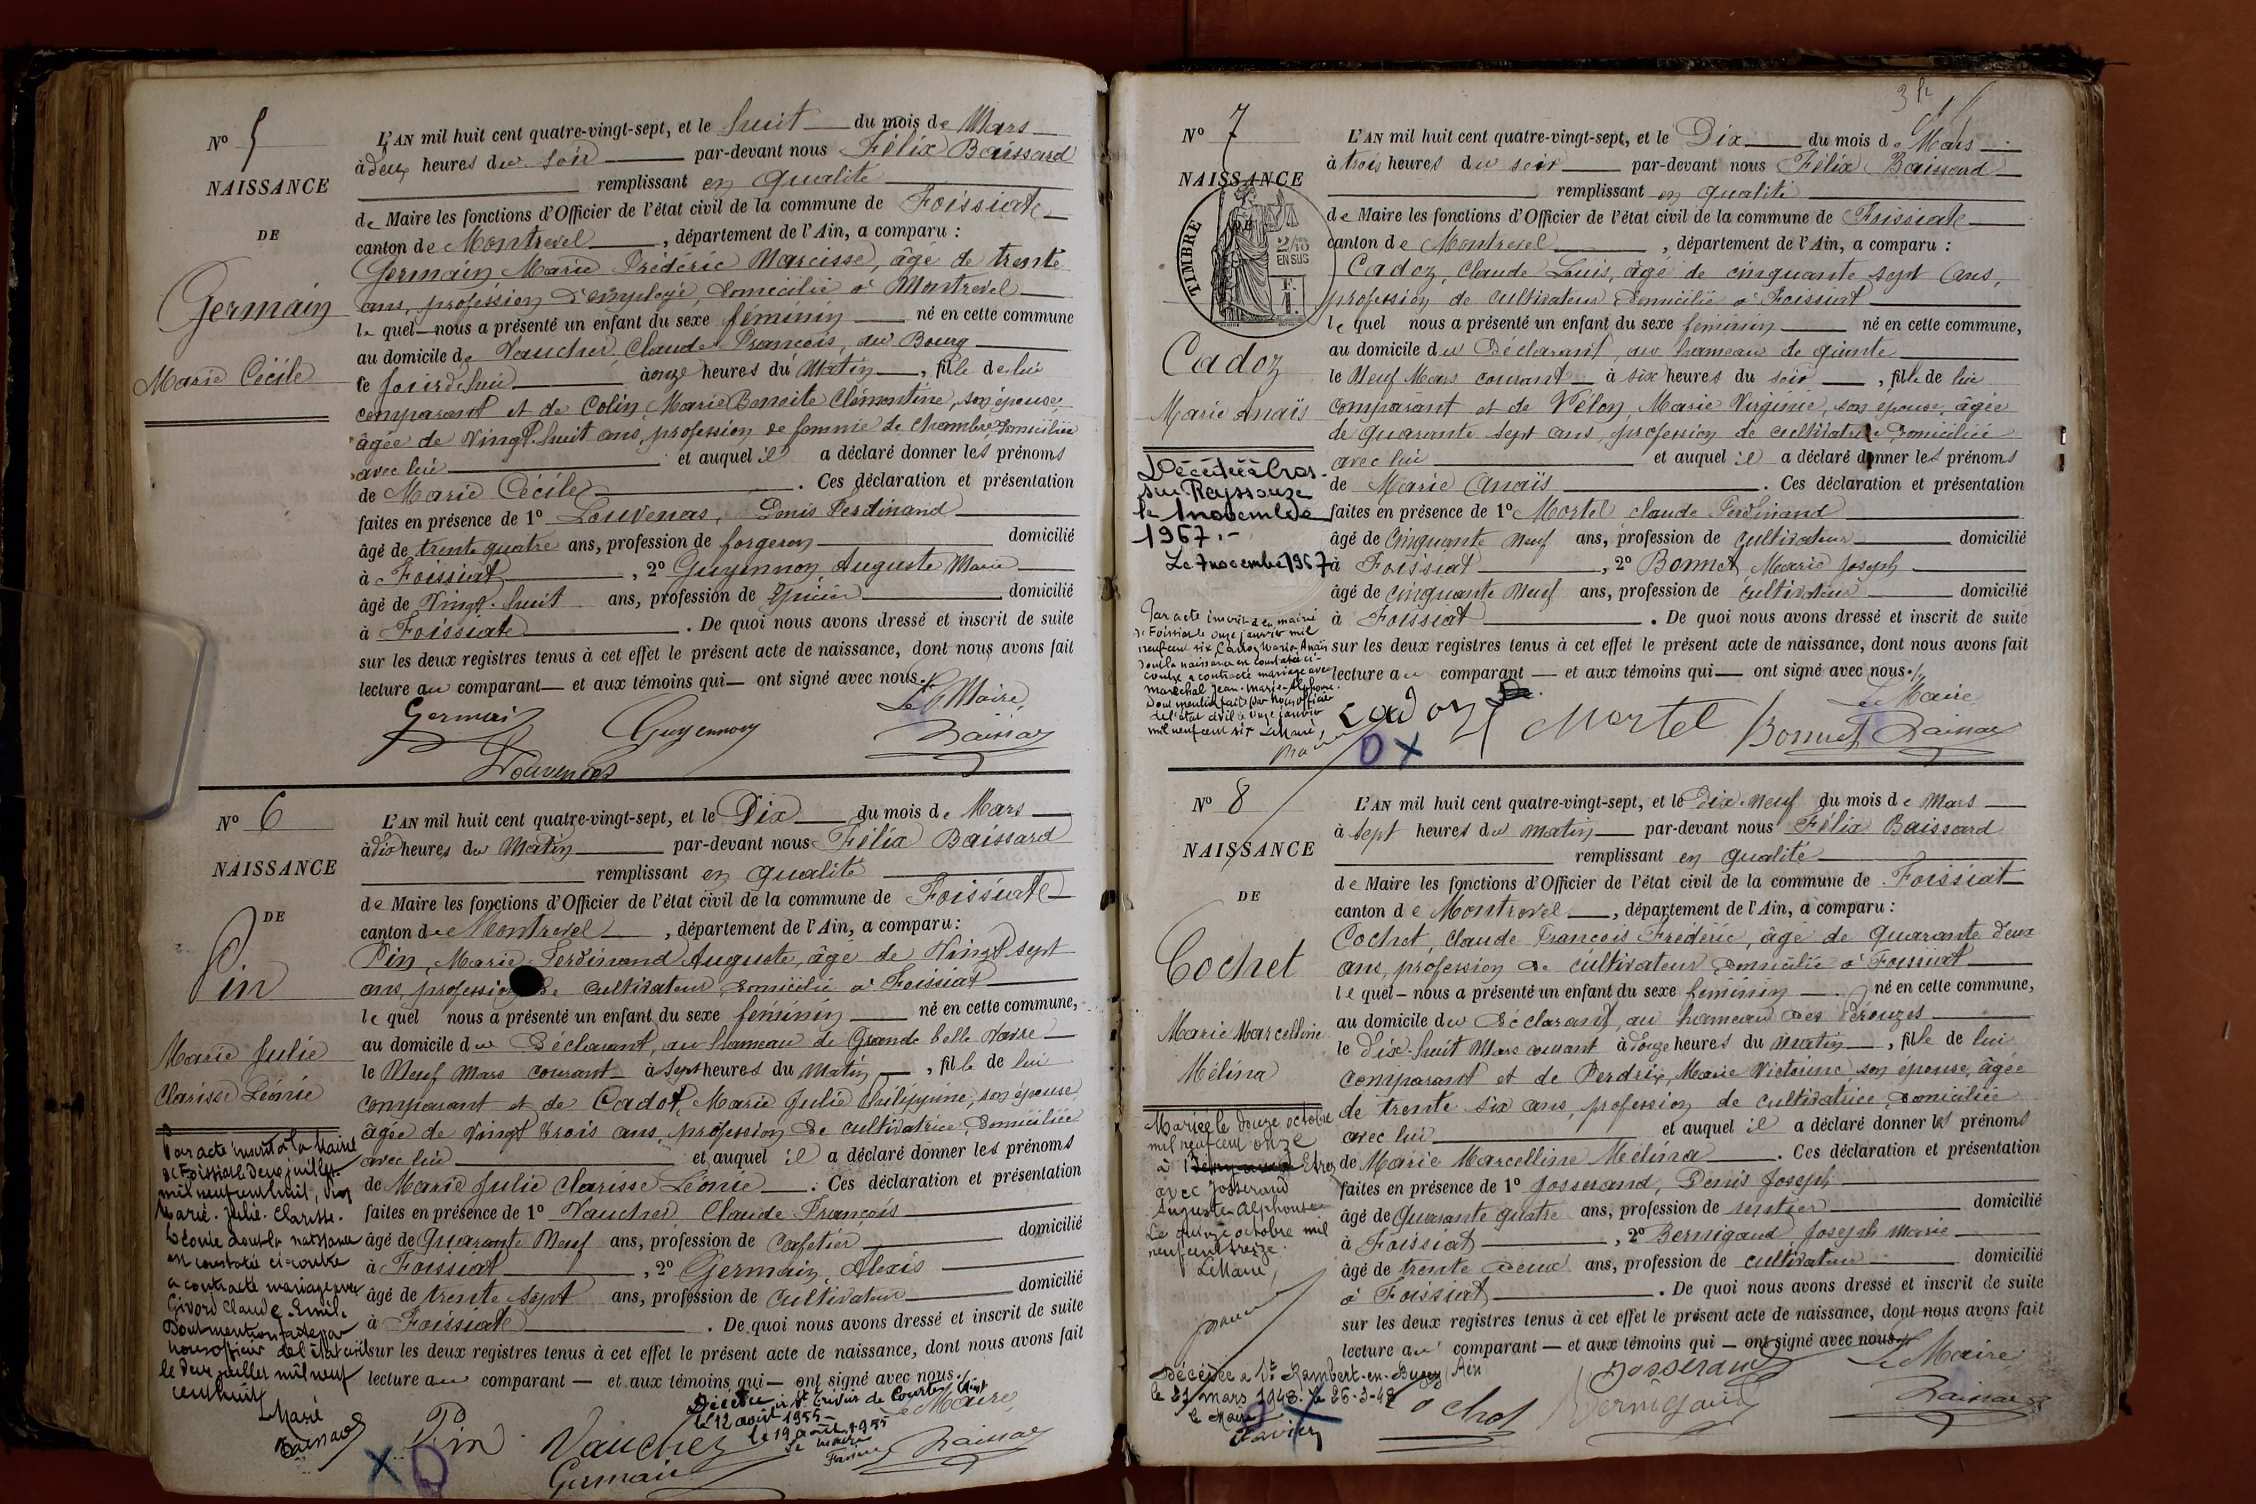 N° 5
NAISSANCE
DE
Germain
Marie Cécile
L'AN mil huit cent quatre-vingt-sept, et le huit du mois de Mars
à deux heures du soir par-devant nous Félix Baissard
remplissant en qualité
de Maire les fonctions d'Officier de l'état civil de la commune de Foissiat
canton de Montrevel, département de l'Ain, a comparu :
Germain, Marie Frédéric Narcisse, âgé de trente
ans, profession d'employé, domicilié à Montrevel
le quel nous a présenté un enfant du sexe féminin né en cette commune
au domicile de Vaucher, Claude François, au Bourg
le jourdhui à onze heures du matin, fille de lui
comparant et de Colin Marie Benoite Clémentine, son épouse,
âgée de vingt huit ans, profession de femme de chambre domiciliée
avec lui et auquel il a déclaré donner les prénoms
de Marie Cécile. Ces déclaration et présentation
faites en présence de 1° Louvenas, Denis Ferdinand
âgé de trente quatre ans, profession de forgeron domicilié
à Foissiat, 2° Guyennon Auguste Marie
âgé de vingt-huit ans, profession de domicilié
à Foissiat. De quoi nous avons dressé et inscrit de suite
sur les deux registres tenus à cet effet le présent acte de naissance, dont nous avons fait
lecture au comparant et aux témoins qui ont signé avec nous.
Le Maire,
Germain Guyennon
Louvenas
N° 6
NAISSANCE
DE
Pin
Marie Julie
Clarisse Léonie
L'AN mil huit cent quatre-vingt-sept, et le Dix du mois de Mars
à dix heures du matin par-devant nous Félix Baissard
remplissant en qualité
de Maire les fonctions d'Officier de l'état civil de la commune de Foissiat
canton de Montrevel, département de l'Ain, a comparu :
Pin, Marie Ferdinand Auguste, âgé de vingt sept
ans, profession de cultivateur domicilié à Foissiat
le quel nous a présenté un enfant du sexe féminin né en cette commune,
au domicile du Déclarant, au hameau de Grande belle vavre
le Neuf Mars courant à sept heures du matin, fille de lui
comparant et de Cadot, Marie Julie Philippine, son épouse,
âgée de vingt trois ans, profession de cultivatrice domiciliée
avec lui et auquel il a déclaré donner les prénoms
de Marie Julie Clarisse Léonie. Ces déclaration et présentation
faites en présence de 1° Vaucher Claude François
âgé de Quarante Neuf ans, profession de Cafetier domicilié
à Foissiat, 2° Germain, Alexis
âgé de trente sept ans, profession de cultivateur domicilié
à Foissiat. De quoi nous avons dressé et inscrit de suite
sur les deux registres tenus à cet effet le présent acte de naissance, dont nous avons fait
lecture au comparant et aux témoins qui ont signé avec nous.
Le Maire,
Par acte inscrit à la Mairie
de Foissiat le deux juillet
mil neuf cent huit, Pin
Marie-Julie-Clarisse-
Léonie dont la naissance
est constatée ci-contre
a contracté mariage avec
Givord Claude Emile
Dont mention faite par
nous officier de l'état civil
le deux juillet mil neuf
cent huit
Le Maire
Décédée à St Trivier de Courtes (Ain)
le 12 août 1955
le 19 août 1955
Le maire
Pin Vaucher
Germain
N° 7
NAISSANCE
DE
TIMBRE
2/10
EN SUS
Cadoz
Marie Anaïs
L'AN mil huit cent quatre-vingt-sept, et le Dix du mois de Mars
à trois heures du soir par-devant nous Félix Baissard
remplissant en qualité
de Maire les fonctions d'Officier de l'état civil de la commune de Foissiat
canton de Montrevel, département de l'Ain, a comparu :
Cadoz, Claude Louis, âgé de cinquante sept ans,
profession de cultivateur domicilié à Foissiat
le quel nous a présenté un enfant du sexe féminin né en cette commune,
au domicile du Déclarant, au hameau de
le Neuf Mars courant à six heures du soir, fille de lui
comparant et de Vélon, Marie Virginie, son épouse, âgée
de quarante sept ans, profession de cultivatrice domiciliée
avec lui et auquel il a déclaré donner les prénoms
de Marie Anaïs. Ces déclaration et présentation
faites en présence de 1° Mortel Claude Ferdinand
âgé de Cinquante Neuf ans, profession de cultivateur domicilié
à Foissiat, 2° Bonnet, Marie Joseph
âgé de cinquante Neuf ans, profession de cultivateur domicilié
à Foissiat. De quoi nous avons dressé et inscrit de suite
sur les deux registres tenus à cet effet le présent acte de naissance, dont nous avons fait
lecture au comparant et aux témoins qui ont signé avec nous.
Le Maire
Décédée à Cras-
sur Reyssouze
le 1 novembre
1967.-
Le 7 novembre 1967
Par acte inscrit à la mairie
de Foissiat le onze janvier mil
neuf cent six, Cadoz Marie Anaïs
dont la naissance est constatée ci-
contre a contracté mariage avec
Maréchal Jean-Marie-Alphonse.
Dont mention faite par nous officier
de l'état civil le onze janvier
mil neuf cent six. Le Maire,
Cadoz Mortel Bonnet
N° 8
NAISSANCE
DE
Cochet
Marie Marcelline
Mélina
L'AN mil huit cent quatre-vingt-sept, et le Dix-Neuf du mois de Mars
à sept heures du matin par-devant nous Félix Baissard
remplissant en qualité
de Maire les fonctions d'Officier de l'état civil de la commune de Foissiat
canton de Montrevel, département de l'Ain, a comparu :
Cochet, Claude François Frédéric, âgé de Quarante deux
ans, profession de cultivateur domicilié à Foissiat
le quel nous a présenté un enfant du sexe féminin né en cette commune,
au domicile du Déclarant, au hameau des Pérouzes
le Dix-huit Mars courant à douze heures du matin, fille de lui
comparant et de Perdrix, Marie Victorine son épouse, âgée
de trente six ans, profession de cultivatrice domiciliée
avec lui et auquel il a déclaré donner les prénoms
de Marie Marcelline Mélina. Ces déclaration et présentation
faites en présence de 1° Josserand, Denis Joseph
âgé de Quarante quatre ans, profession de rentier domicilié
à Foissiat, 2° Bernigaud Joseph Marie
âgé de trente deux ans, profession de cultivateur domicilié
à Foissiat. De quoi nous avons dressé et inscrit de suite
sur les deux registres tenus à cet effet le présent acte de naissance, dont nous avons fait
lecture au comparant et aux témoins qui ont signé avec nous.
Le Maire
Mariée le douze octobre
mil neuf cent onze
à Etrez
avec Josserand
Auguste Alphonse
Le quinze octobre mil
neuf cent treize.
Le Maire,
Décédée à St Rambert-en-Bugey (Ain)
le 21 mars 1948. le 26-3-48
le Maire
Cochet Josserand
Bernigaud